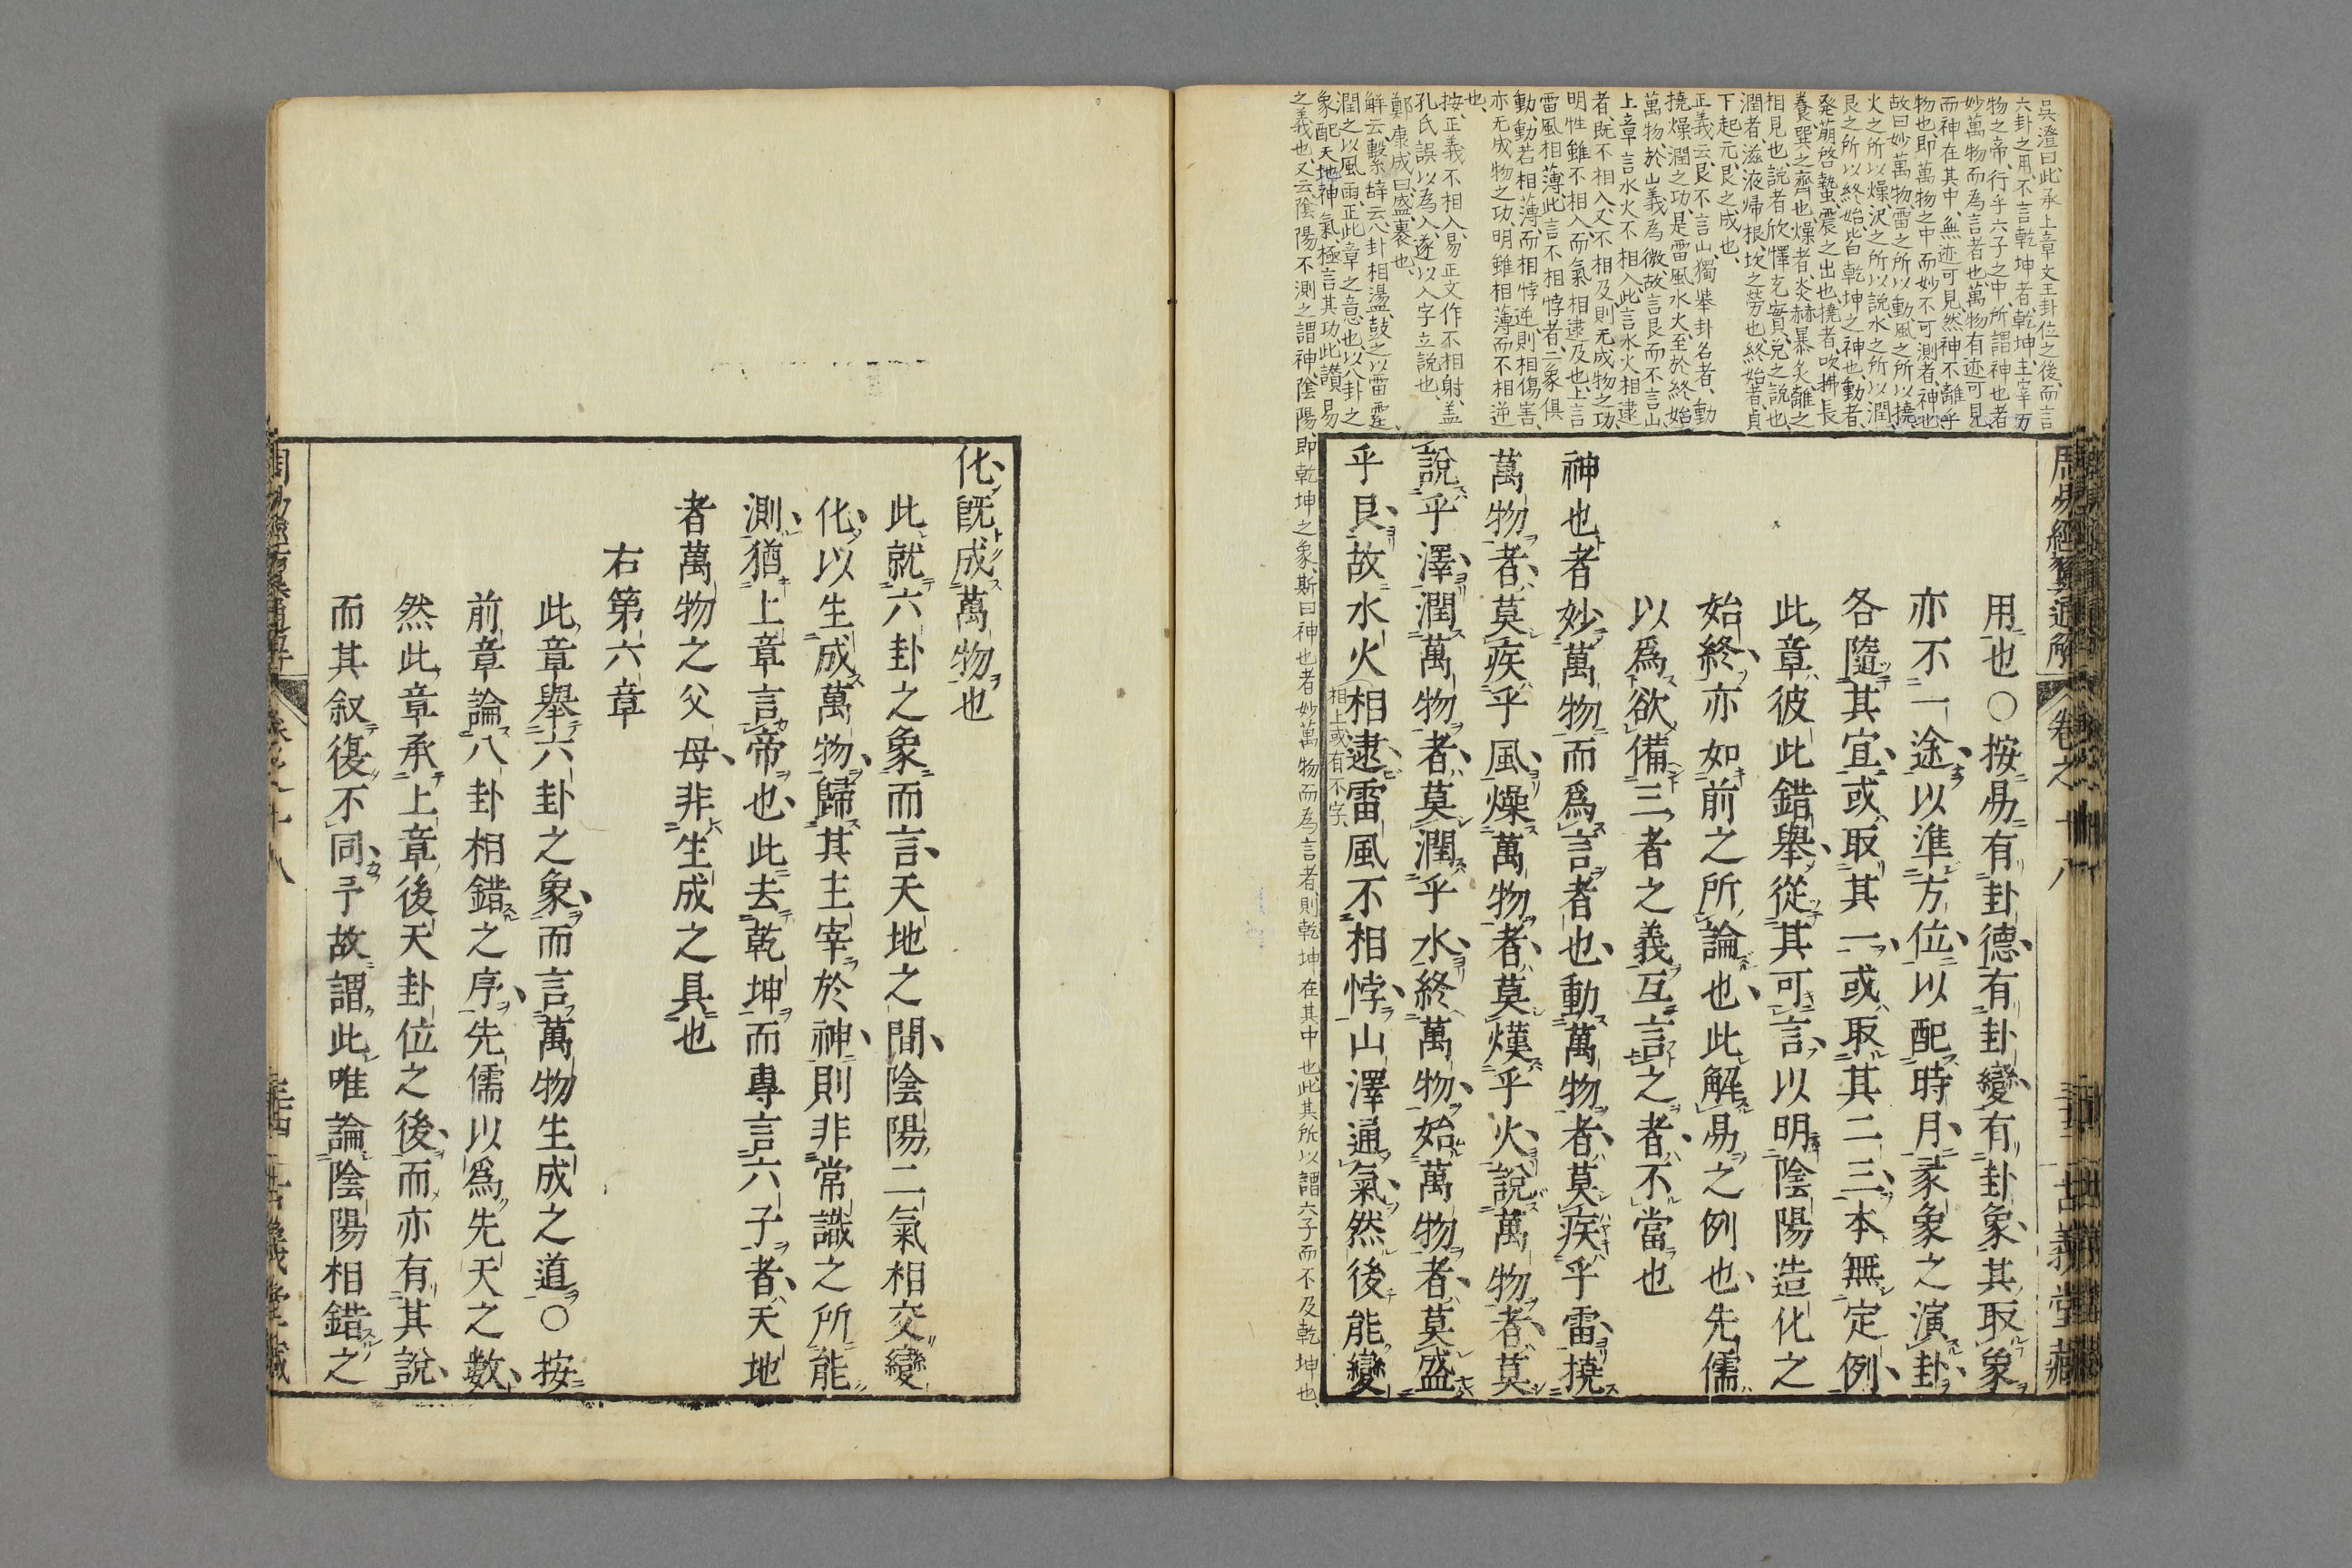 吳澄曰此承上章文王卦位之後而言
六卦之用不言乾坤者乾坤主宰万
物之帝行乎六子之中所謂神也者
妙萬物而為言者也萬物有迹可見
而神在其中無迹可見然神不離乎
物也即萬物之中而妙不可測者神也
故曰妙萬物雷之所以動風之所以撓
火之所以燥沢之所以說水之所以潤
艮之所以終始皆乾坤之神也動者
発萠啓蟄震之出也撓者吹拂長
養巽之齊也燥者炎赫暴炙離之
相見也說者欣懌充實兌之説也
潤者滋液帰根坎之勞也終始者貞
下起元艮之成也
正義云艮不言山獨挙卦名者動
撓燥潤之功是雷風水火至於終始
萬物於山義為微故言艮而不言山
上章言水火不相入此言水火相逮
者既不相入又不相及則无成物之功
明性雖不相入而氣相逮及也上言
雷風相薄此言不相悖者二象俱
動動若相薄而相悖逆則相傷害
亦无成物之功明雖相薄而不相逆
也
按正義不相入易正文作不相射盖
孔氏誤以為入遂以入字立説也
鄭康成曰盛裹也
觧云繫辞云八卦相盪鼓之以雷霆
潤之以風雨正此章之意也以八卦之
象配天地神氣極言其功此讃易
之義也又云陰陽不測之謂神陰陽即乾坤之象斯曰神也者妙萬物而為言者則乾坤在其中也此其所以謂六子而不及乾坤也
周易經翼通解 卷之十八 古義堂藏
用也○按易有卦德有卦變有卦象其取象
亦不一途以準方位以配時月彖象之演卦
各隨其宜或取其一或取其二三本無定例
此章彼此錯舉從其可言以明陰陽造化之
始終亦如前之所論也此解易之例也先儒
以爲欲備三者之義互言之者不當也
神也者妙萬物而爲言者也動萬物者莫疾乎雷撓
萬物者莫疾乎風燥萬物者莫熯乎火説萬物者莫
説乎澤潤萬物者莫潤乎水終萬物始萬物者莫盛
乎艮故水火相逮雷風不相悖山澤通氣然後能變
相上或有不字
化既成萬物也
此就六卦之象而言天地之間陰陽二氣相交變
化以生成萬物歸其主宰於神則非常識之所能
測猶上章言帝也此去乾坤而專言六子者天地
者萬物之父母非生成之具也
右第六章
此章舉六卦之象而言萬物生成之道○按
前章論八卦相錯之序先儒以爲先天之數
然此章承上章後天卦位之後而亦有其説
而其叙復不同予故謂此唯論陰陽相錯之